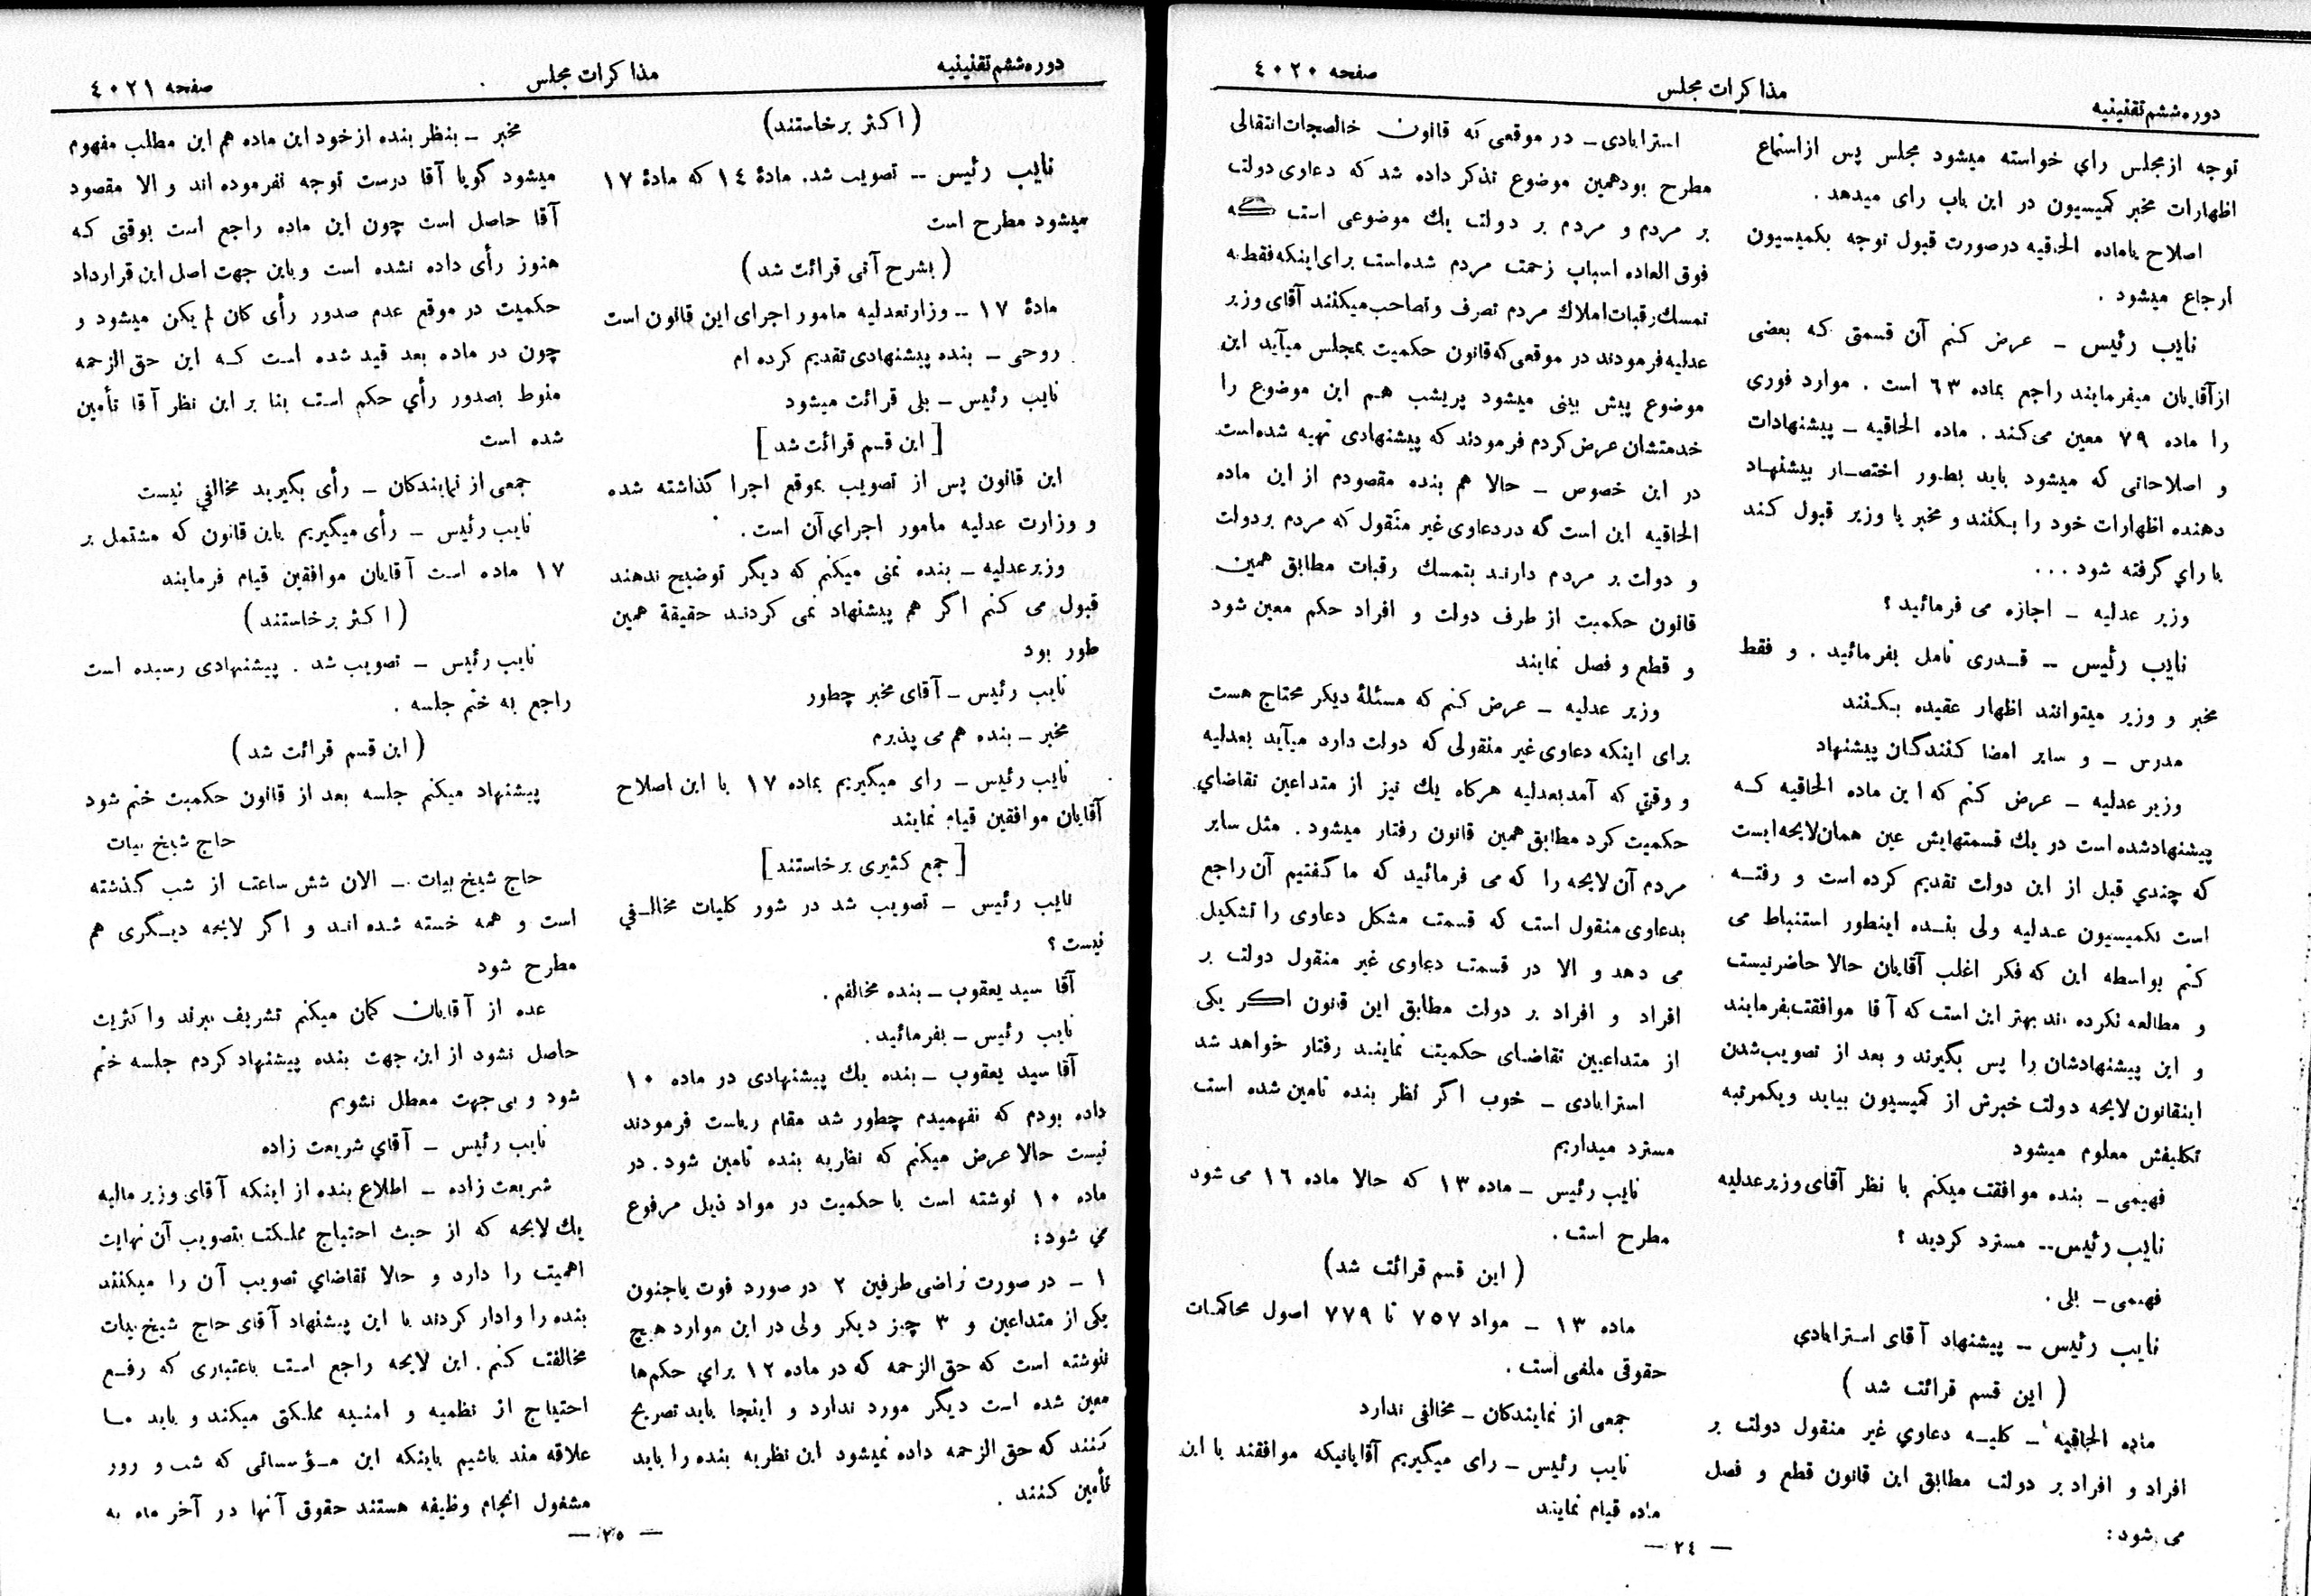 دوره ششم تقنینیه
مذاکرات مجلس
صفحه ٤٠٢٠
توجه ازمجلس رأی خواسته میشود مجلس پس ازاستماع
اظهارات مخبر کمیسیون در این باب رای میدهد .
اصلاح یاماده الحاقیه درصورت قبول توجه بکمیسیون
ارجاع میشود .
نایب رئیس ــ عرض کنم آن قسمتی که بعضی
ازآقایان میفرمایند راجع بماده ٦٣ است . موارد فوری
را ماده ٧٩ معین می‌کند . ماده الحاقیه ــ پیشنهادات
و اصلاحاتی که میشود باید بطور اختصار پیشنهاد
دهنده اظهارات خود را بکنند و مخبر یا وزیر قبول کند
یا راي گرفته شود ...
وزیر عدلیه ــ اجازه می فرمائید ؟
نایب رئیس ــ قدری تامل بفرمائید . و فقط
مخبر و وزیر میتوانند اظهار عقیده بکنند
مدرس ــ و سایر امضا کنندگان پیشنهاد
وزیر عدلیه ــ عرض کنم که این ماده الحاقیه که
پیشنهادشده است در یك قسمتهایش عین همان‌لایحه‌ایست
که چندي قبل از این دولت تقدیم کرده است و رفته
است بکمیسیون عدلیه ولی بنده اینطور استنباط می
کنم بواسطه این که فکر اغلب آقایان حالا حاضرنیست
و مطالعه نکرده اند بهتر این است که آقا موافقت‌بفرمایند
و این پیشنهادشان را پس بگیرند و بعد از تصویب‌شدن
اینقانون لایحه دولت خبرش از کمیسیون بیاید ویکمرتبه
تکلیفش معلوم میشود
فهیمی ــ بنده موافقت میکنم با نظر آقای وزیرعدلیه
نایب رئیس‌ــ مسترد کردید ؟
فهیمی ــ بلی .
نایب رئیس ــ پیشنهاد آقای استرابادي
( این قسم قرائت شد )
ماده الحاقیه ــ کلیه دعاوي غیر منقول دولت بر
افراد و افراد بر دولت مطابق این قانون قطع و فصل
می شود :
استرابادی ــ در موقعی که قانون خالصجات‌انتقالی
مطرح بودهمین موضوع تذکر داده شد که دعاوی دولت
بر مردم و مردم بر دولت یك موضوعی است که
فوق العاده اسباب زحمت مردم شده‌است برای‌اینکه فقط به
تمسك رقبات‌املاك مردم تصرف وتصاحب‌میکنند آقای وزیر
عدلیه‌فرمودند در موقعی‌که‌قانون حکمیت بمجلس میآید این
موضوع پیش بینی میشود پریشب هم این موضوع را
خدمتشان عرض‌کردم فرمودند که پیشنهادی تهیه شده‌است
در این خصوص ــ حالا هم بنده مقصودم از این ماده
الحاقیه این است که در دعاوی غیر منقول که مردم بر دولت
و دولت بر مردم دارند بتمسك رقبات مطابق همین
قانون حکمیت از طرف دولت و افراد حکم معین شود
و قطع و فصل نمایند
وزیر عدلیه ــ عرض کنم که مسئلهٔ دیگر محتاج هست
برای اینکه دعاوی غیر منقولی که دولت دارد میآید بعدلیه
و وقتی که آمد بعدلیه هرکاه یك نیز از متداعین تقاضاي
حکمیت کرد مطابق همین قانون رفتار میشود . مثل سایر
مردم آن لایحه را که می فرمائید که ما گفتیم آن راجع
بدعاوی منقول است که قسمت مشکل دعاوی را تشکیل
می دهد و الا در قسمت دعاوی غیر منقول دولت بر
افراد و افراد بر دولت مطابق این قانون اکر یکی
از متداعیین تقاضای حکمیت نمایند رفتار خواهد شد
استرابادی ــ خوب اگر نظر بنده تامین شده است
مسترد میداریم
نایب رئیس ــ ماده ١٣ که حالا ماده ١٦ می شود
مطرح است .
( این قسم قرائت شد )
ماده ١٣ ــ مواد ٧٥٧ تا ٧٧٩ اصول محاکمات
حقوقی ملغی است .
جمعی از نمایندکان ــ مخالفی ندارد
نایب رئیس ــ رای میگیریم آقایانیکه موافقند با این
ماده قیام نمایند
ــ ٢٤ ــ
دوره ششم تقنینیه
مذاکرات مجلس
صفحه ٤٠٢١
( اکثر برخاستند )
نایب رئیس ــ تصویب شد. مادهٔ ١٤ که مادهٔ ١٧
میشود مطرح است
( بشرح آتی قرائت شد )
مادهٔ ١٧ ــ وزارتعدلیه مامور اجرای این قانون است
روحی ــ بنده پیشنهادی تقدیم کرده ام
نایب رئیس ــ بلی قرائت میشود
[ این قسم قرائت شد ]
این قانون پس از تصویب بموقع اجرا کذاشته شده
و وزارت عدلیه مامور اجراي آن است .
وزیرعدلیه ــ بنده تمنی میکنم که دیگر توضیح ندهند
قبول می کنم اگر هم پیشنهاد نمی کردند حقیقة همین
طور بود
نایب رئیس ــ آقای مخبر چطور
مخبر ــ بنده هم می پذیرم
نایب رئیس ــ رای میگیریم بماده ١٧ با این اصلاح
آقایان موافقین قیام نمایند
[ جمع کثیری برخاستند ]
نایب رئیس ــ تصویب شد در شور کلیات مخالفي
نیست ؟
آقا سید یعقوب ــ بنده مخالفم .
نایب رئیس ــ بفرمائید .
آقا سید یعقوب ــ بنده یك پیشنهادی در ماده ١٠
داده بودم که نفهمیدم چطور شد مقام ریاست فرمودند
نیست حالا عرض میکنم که نظریه بنده تامین شود . در
ماده ١٠ نوشته است با حکمیت در مواد ذیل مرفوع
مي شود :
١ ــ در صورت تراضی طرفین ٢ در صورد فوت یاجنون
یکی از متداعین و ٣ چیز دیکر ولی در این موارد هیچ
ننوشته است که حق الزحمه که در ماده ١٢ براي حکم‌ها
معین شده است دیگر مورد ندارد و اینجا باید تصریح
کنند که حق الزحمه داده نمیشود این نظریه بنده را باید
تأمین کنند .
مخبر ــ بنظر بنده ازخود این ماده هم این مطلب مفهوم
میشود گویا آقا درست توجه نفرموده اند و الا مقصود
آقا حاصل است چون این ماده راجع است بوقتی که
هنوز رأی داده نشده است وباین جهت اصل این قرارداد
حکمیت در موقع عدم صدور رأی کان لم یکن میشود و
چون در ماده بعد قید شده است که این حق الزحمه
منوط بصدور رأي حکم است بنا بر این نظر آقا تأمین
شده است
جمعی از نمایندکان ــ رأی بگیرید مخالفي نیست
نایب رئیس ــ رأی میگیریم باین قانون که مشتمل بر
١٧ ماده است آقایان موافقین قیام فرمایند
( اکثر برخاستند )
نایب رئیس ــ تصویب شد . پیشنهادی رسیده است
راجع به ختم جلسه .
( این قسم قرائت شد )
پیشنهاد میکنم جلسه بعد از قانون حکمیت ختم شود
حاج شیخ بیات
حاج شیخ بیات ــ الان شش ساعت از شب گذشته
است و همه خسته شده اند و اگر لایحه دیگری هم
مطرح شود
عده از آقایان کمان میکنم تشریف ببرند واکثریت
حاصل نشود از این جهت بنده پیشنهاد کردم جلسه ختم
شود و بی جهت معطل نشویم
نایب رئیس ــ آقاي شریعت زاده
شریعت زاده ــ اطلاع بنده از اینکه آقای وزیر مالیه
یك لایحه که از حیث احتیاج مملکت بتصویب آن نهایت
اهمیت را دارد و حالا تقاضاي تصویب آن را میکنند
بنده را وادار کردند با این پیشنهاد آقای حاج شیخ بیات
مخالفت کنم . این لایحه راجع است باعتباری که رفع
احتیاج از نظمیه و امنیه مملکتی میکند و باید ما
علاقه مند باشیم باینکه این مؤسساتی که شب و روز
مشغول انجام وظیفه هستند حقوق آنها در آخر ماه به
ــ ٢٥ ــ